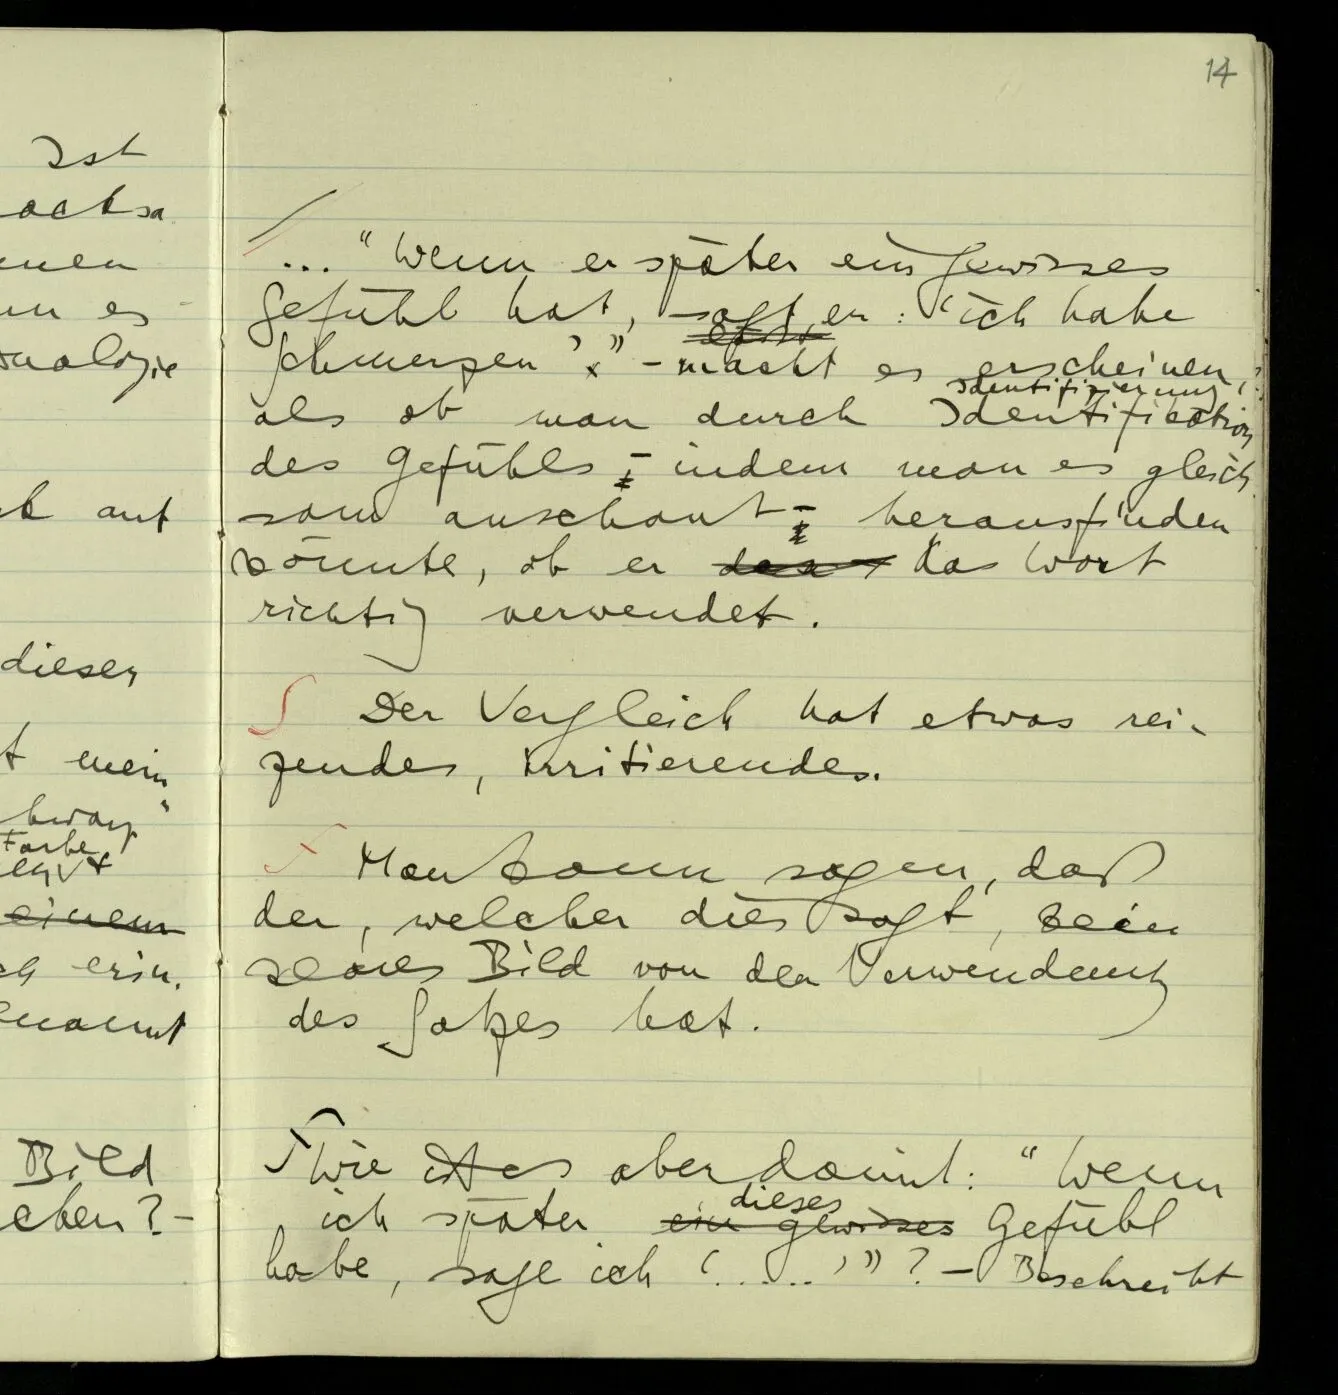 14
Ist
enen
nn es
auf
dieser
mein
Farbe
einem
Bild
... "Wenn er später ein gewisses
Gefühl hat, sagt er: 'ich habe
Schmerzen'" – macht es erscheinen,
Identifizierung
als ob man durch Identification
des Gefühls – indem man es gleich
sam anschaut – herausfinden
könnte, ob er das Wort
richtig verwendet.
Der Vergleich hat etwas rei-
zendes, irritierendes.
Man kann sagen, daß
der, welcher dies sagt, kein
klares Bild von der Verwendung
des Satzes hat.
Wie ist es aber damit: "Wenn
dieses
ich später ein gewisses Gefühl
habe, sage ich '.....'"? – Beschreibt